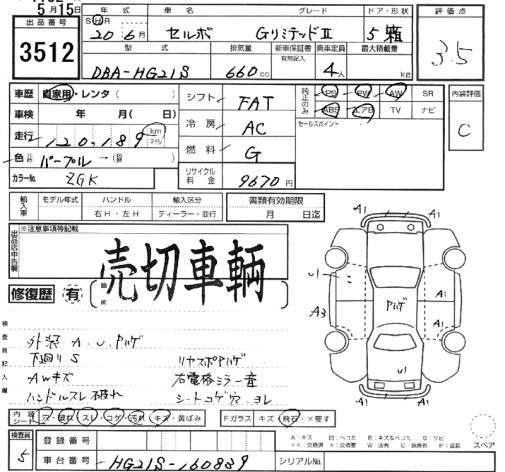 5月15日
出品番号
3512
年式 車名 グレード ドア・形状
SH 20年6月 セルボ GリミテッドⅡ 5箱
型式 排気量 新車保証書 乗車定員 最大積載量
有無記入
DBA-HG21S 660cc 4人 kg
評価点
3.5
車歴 自家用・レンタ( )
車検 年 月( 日)
走行 120,189 km マイル
色 パープル→( )
カラーNo. ZGK
シフト FAT
冷房 AC
燃料 G
リサイクル料金 9670円
純正のみ PS PW AW SR
ABS エアB TV ナビ
セールスポイント
内装評価
C
輸入車 モデル年式 ハンドル 輸入区分
右H・左H ディーラー・並行
書類有効期限
月 日迄
出品店申告欄
※注意事項等記載
売切車輌
修復歴 有
箇所
検査員記入欄
外装 A.U.Pハゲ
下廻りS
AWキズ
ハンドルスレ 破れ
リヤスポPハゲ
右電格ミラー歪
シートコゲ穴・ヨレ
A1 A1
U1 A1
A3 Pハゲ A1
U1
A1 A1
内装シート 穴・破れ・スレ・コゲ・汚れ・キズ・黄ばみ
Fガラス キズ・飛石・×要す
スペア
検査員 5
登録番号
車台番号 HG21S-160839
シリアルNo.
A:キズ U:ヘコミ B:キズ&ヘコミ S:サビ